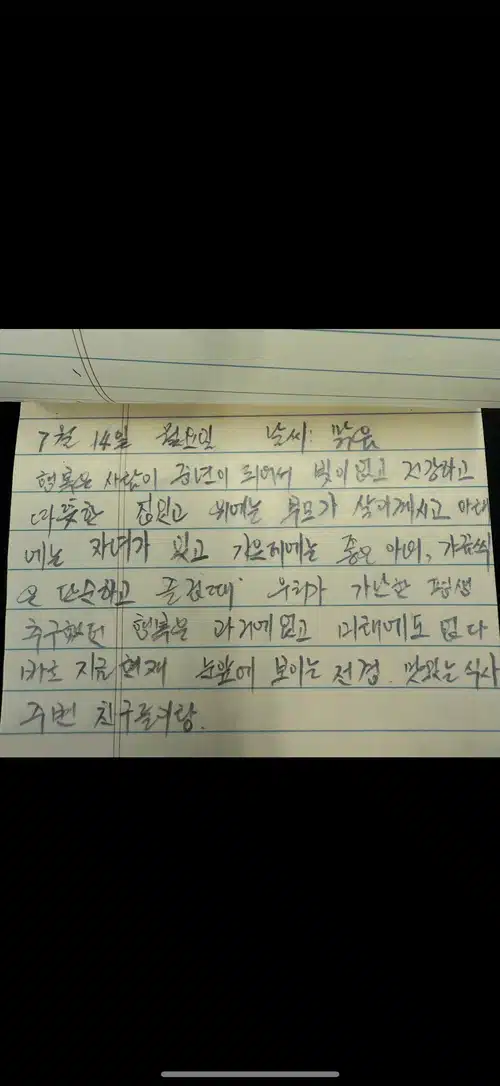 7월 14일 월요일 날씨: 맑음
행복은 사람이 중년이 되어서 빚이 없고 건강하고
따뜻한 집있고 위에는 부모가 살아계시고 아래
에는 자녀가 있고 가운데에는 좋은 아내, 가끔씩
은 단순하고 즐겁때 우리가 가난한 평생
추구했던 행복은 과거에없고 미래에도 없다
바로 지금 현재 눈앞에 보이는 전경. 맛있는 식사
주변 친구들이랑.